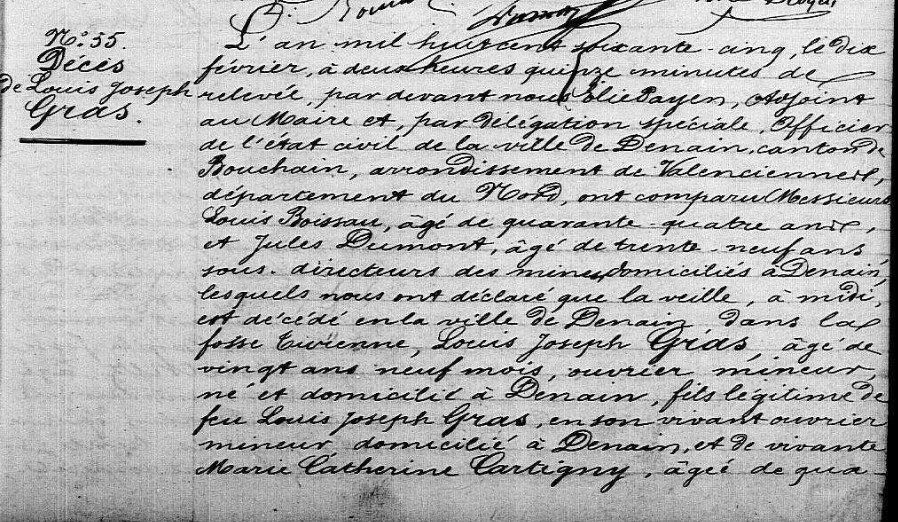 N.º 55.
Décès
de Louis Joseph
Gras.
L'an mil huit cent soixante-cinq, le dix
février, à deux heures quinze minutes de
relevée, par devant nous Elie Payen, Adjoint
au Maire et, par délégation spéciale, Officier
de l'état civil de la ville de Denain, canton de
Bouchain, arrondissement de Valenciennes,
département du Nord, ont comparu Messieurs
Louis Boissau, âgé de quarante-quatre ans,
et Jules Dumont, âgé de trente-neuf ans
sous-directeurs des mines, domiciliés à Denain,
lesquels nous ont déclaré que la veille, à midi,
est décédé en la ville de Denain, dans la
fosse Turenne, Louis Joseph Gras, âgé de
vingt ans neuf mois, ouvrier mineur,
né et domicilié à Denain, fils légitime de
feu Louis Joseph Gras, en son vivant ouvrier
mineur domicilié à Denain, et de vivante
Marie Catherine Cartigny, âgée de qua-